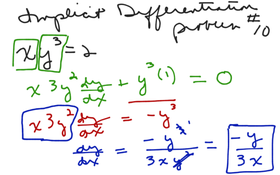 Implicit Differentiation
problem #10
xy³ = 2
x 3y² dy/dx + y³ (1) = 0
x 3y² dy/dx = -y³
dy/dx = -y³ / 3xy² = -y / 3x